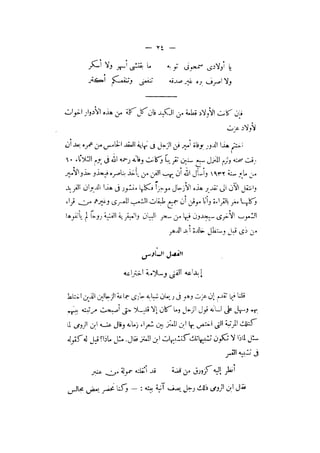 — ٢٤ —
يا أولادى سمعونى توبه ما بقلشى أسهر ولا أسكر
ولا اصرف بره غير صدقه تنفعنى وتنفعكم أكتر
فإن كانت الأولاد قطعة من الكبد فان كل كلمة من هذه الأدوار اخوات
لأولاد عزت
اختتم هذا الدور بوفاة أمير فن الزجل فى نهاية العقد الخامس من عمره بعد أن
رقت صحته ولزم المنزل سبع سنين تقريباً وكانت وفاته رحمه الله فى يوم الثلاثاء ١٠
من مايو سنة ١٩٣٢ وأسأل الله أن يهب الفن من يأخذ بناصره فيحذو حذو الأمير
وانتقل الآن الى تقدير هذه الأزجال موجزاً فكلها منشور فى هذا الديوان الفريد
وكلها مغر بالقراءة وأنا موقن أن جميع طبقات الشعب المصرى وغيرهم من قراء
الشعوب الأخرى سيجدون فيها من سحر البيان والعبقرية الفنية روحاً لم يألفوها
من ذى قبل وستظل خالدة أبد الدهر
الفصل السادس
إبداعه الفنى وسلامة اختراعه
قلنا فيما تقدم إن عزت وهو فى ريعان شبابه جارى جماعة الزجالين الذين اختلط
بهم وسهل على لسانه قول الزجل وما كان إلا قليلا حتى أصبحت مرتبته بينهم
كتلك المرتبة التى اختص بها ابن المعتز بين شعراء زمانه وقال عنه ابن الرومى لما
سئل لماذا لا تكون تشبيهاتك كتشبيهات ابن المعتز فقال. مثل ماذا؟ قيل له كقوله
فى تشبيه القمر
أنظر إليه كزورق من فضة قد أثقلته حمولة من عنبر
فقال ابن الرومى ذلك رجل يصف آنية بيته : — وكنا نحضر بعض مجالس